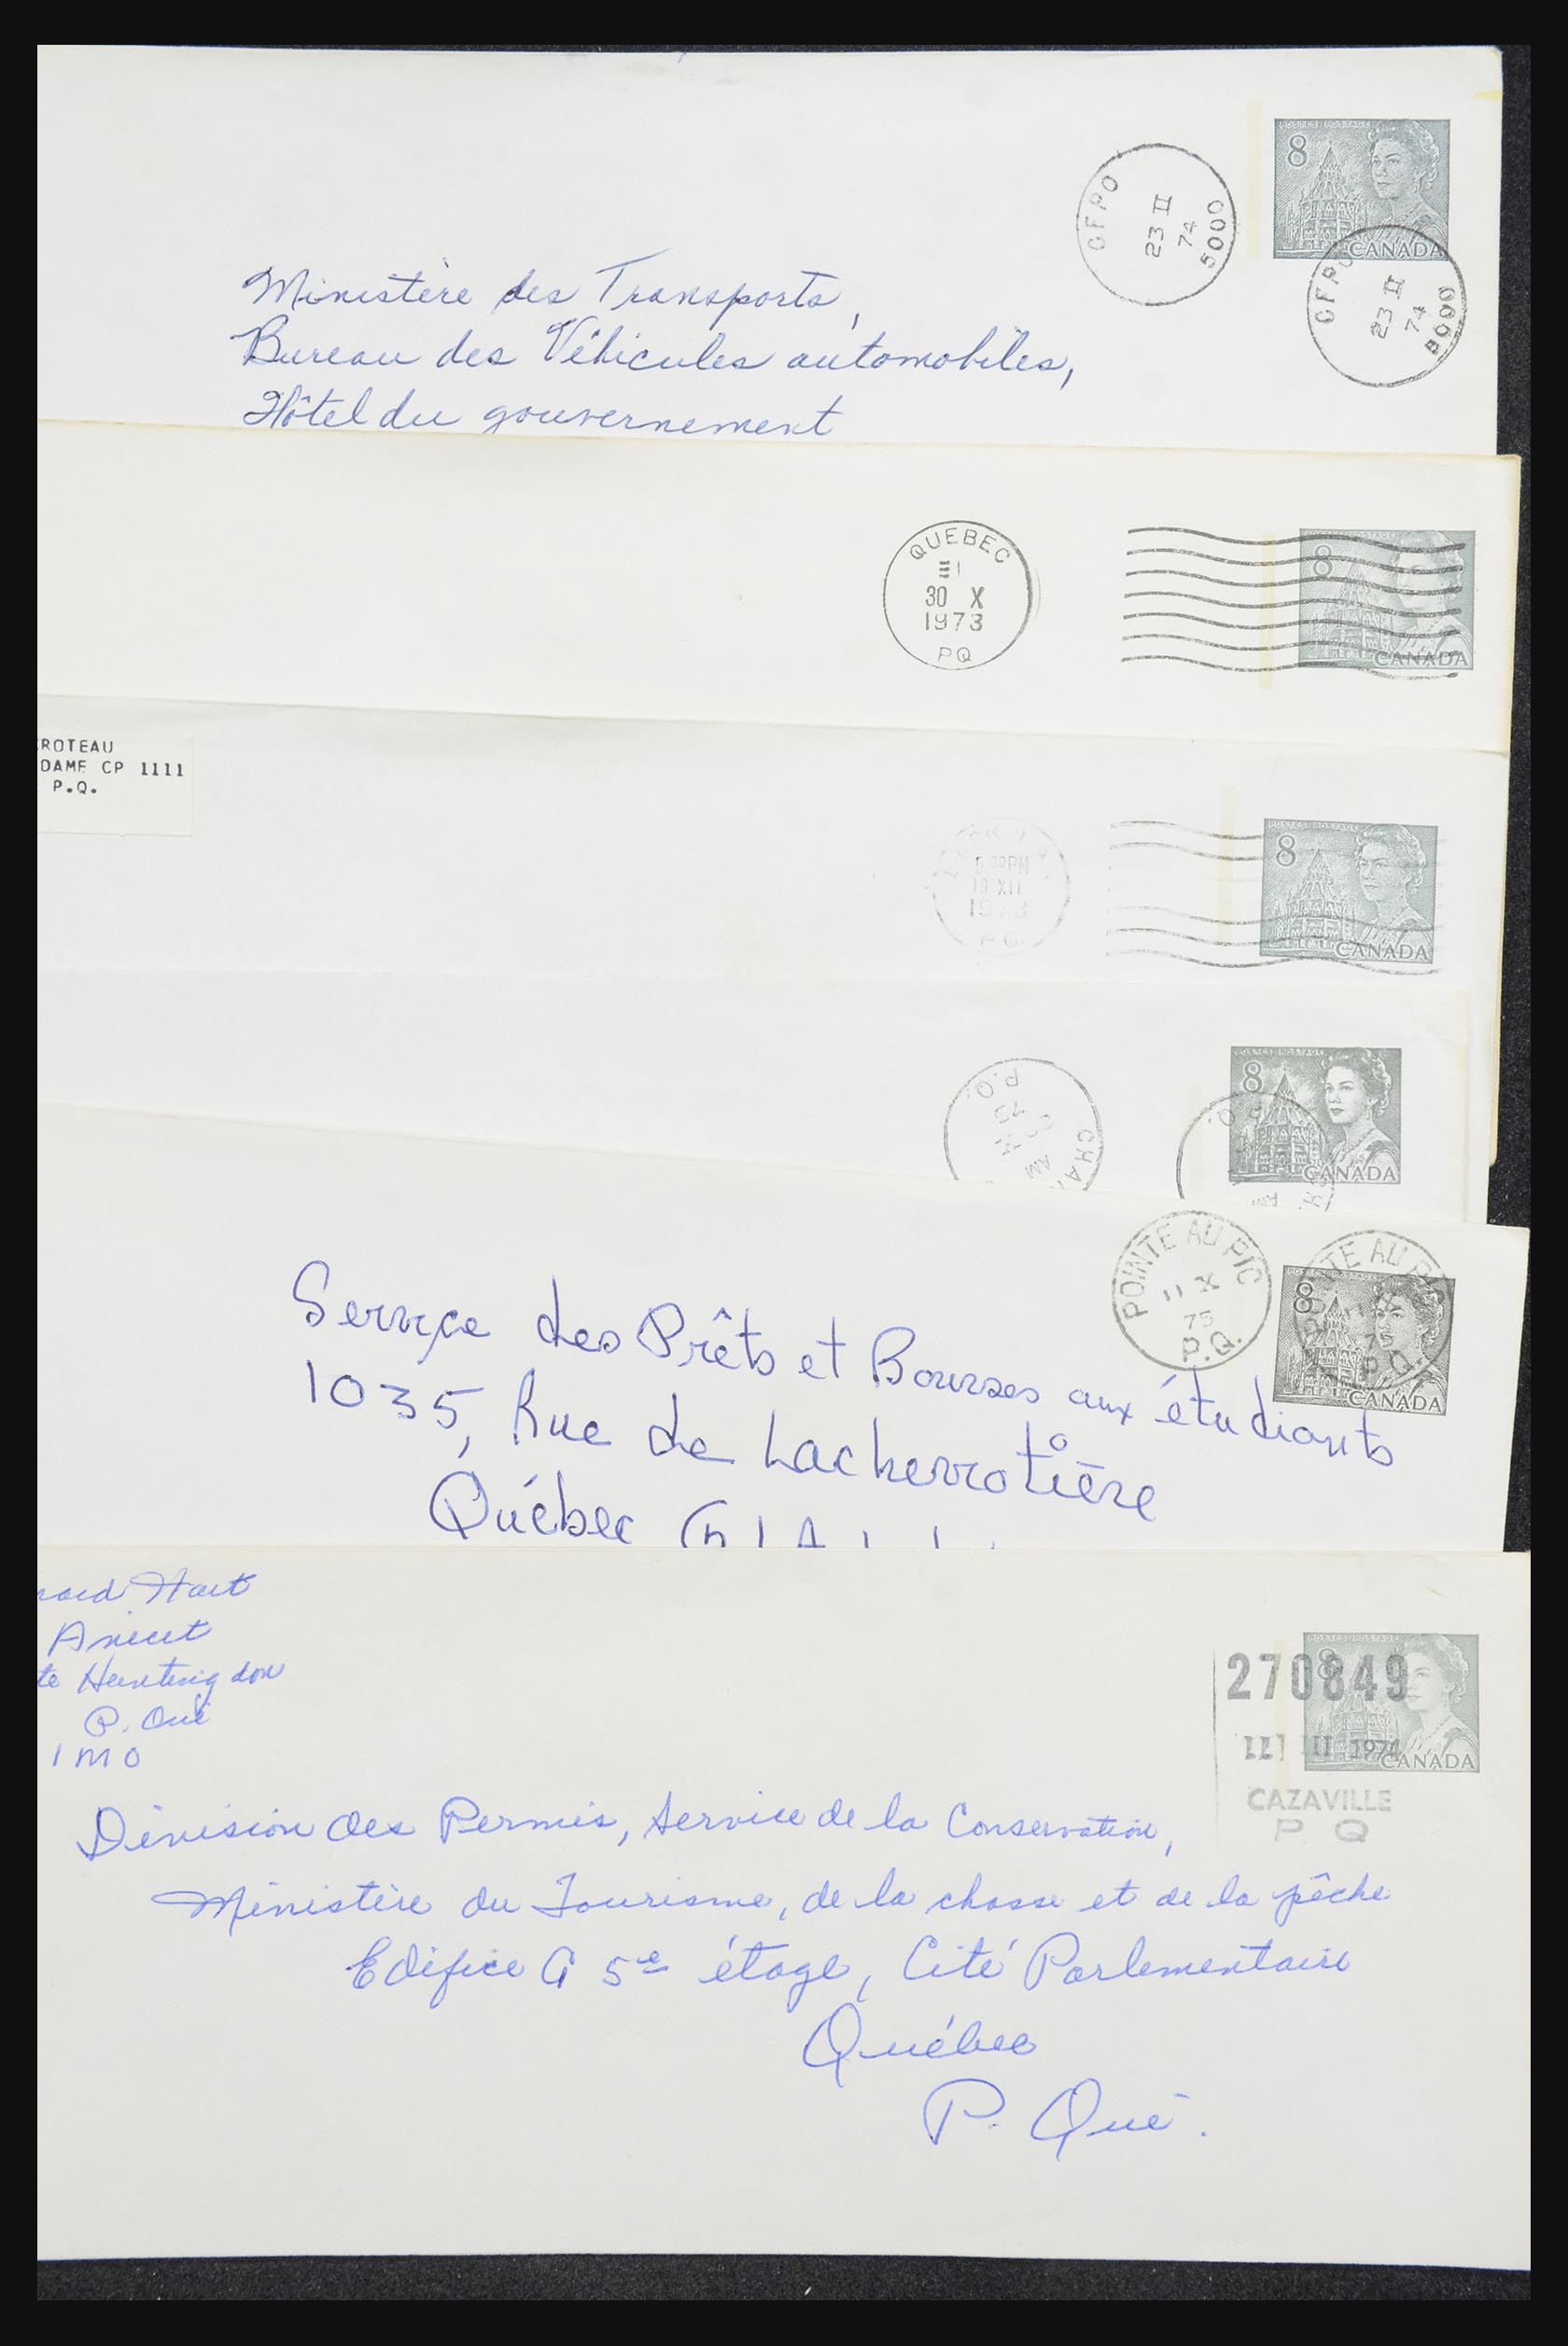 POSTES POSTAGE
8
CANADA
CFPO
23 II
74
5000
CFPO
23 II
74
5000
Ministère des Transports,
Bureau des Véhicules automobiles,
Hôtel du gouvernement
QUEBEC
30 X
1973
PQ
8
CANADA
ROTEAU
DAME CP 1111
P.Q.
PM
XII
1973
P.Q.
POSTES POSTAGE
8
CANADA
P.Q.
75
AM
CHA
POSTES POSTAGE
8
CANADA
P.Q.
AM
POINTE AU PIC
11 X
75
P.Q.
TE AU P
P.Q.
8
CANADA
Service des Prêts et Bourses aux étudiants
1035, Rue de Lacherrotière
Québec
Hart
Anicet
te Huntingdon
P. Qué
1M0
270849
III 1974
CAZAVILLE
P Q
POSTES POSTAGE
8
CANADA
Division des Permis, Service de la Conservation,
Ministère du Tourisme, de la chasse et de la pêche
Edifice G 5e étage, Cité Parlementaire
Québec
P. Qué.